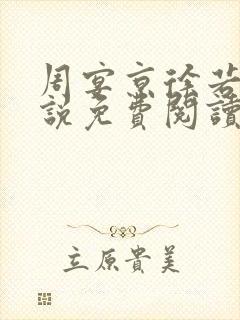 周宴京徐若
說免費閱讀
立原貴美